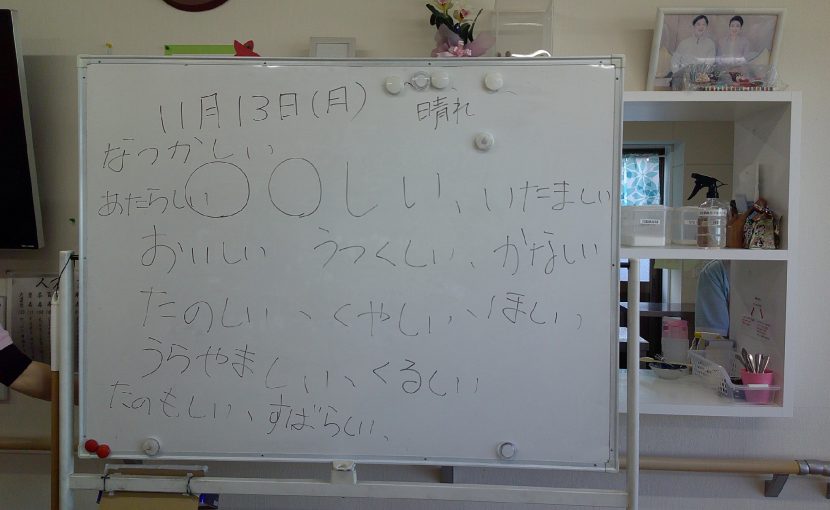 11月13日(月) 晴れ
なつかしい
あたらしい ○○しい、いたましい
おいしい うつくしい、かなしい
たのしい、くやしい、ほしい、
うらやましい、くるしい
たのもしい、すばらしい、